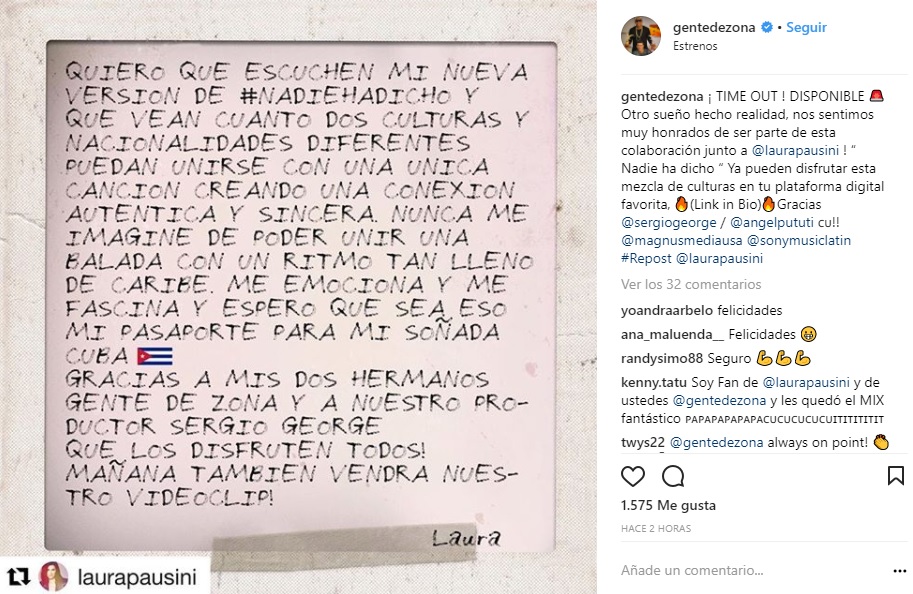 QUIERO QUE ESCUCHEN MI NUEVA
VERSION DE #NADIEHADICHO Y
QUE VEAN CUANTO DOS CULTURAS Y
NACIONALIDADES DIFERENTES
PUEDAN UNIRSE CON UNA UNICA
CANCION CREANDO UNA CONEXION
AUTENTICA Y SINCERA. NUNCA ME
IMAGINE DE PODER UNIR UNA
BALADA CON UN RITMO TAN LLENO
DE CARIBE. ME EMOCIONA Y ME
FASCINA Y ESPERO QUE SEA ESO
MI PASAPORTE PARA MI SOÑADA
CUBA 🇨🇺
GRACIAS A MIS DOS HERMANOS
GENTE DE ZONA Y A NUESTRO PRO-
DUCTOR SERGIO GEORGE
QUE LOS DISFRUTEN TODOS!
MAÑANA TAMBIEN VENDRA NUES-
TRO VIDEOCLIP!
Laura
laurapausini
gentedezona • Seguir
Estrenos
gentedezona ¡ TIME OUT ! DISPONIBLE 🚨
Otro sueño hecho realidad, nos sentimos
muy honrados de ser parte de esta
colaboración junto a @laurapausini ! “
Nadie ha dicho “ Ya pueden disfrutar esta
mezcla de culturas en tu plataforma digital
favorita, 🔥(Link in Bio)🔥Gracias
@sergiogeorge / @angelpututi cu!!
@magnusmediausa @sonymusiclatin
#Repost @laurapausini
Ver los 32 comentarios
yoandraarbelo felicidades
ana_maluenda__ Felicidades 😁
randysimo88 Seguro 💪💪💪
kenny.tatu Soy Fan de @laurapausini y de
ustedes @gentedezona y les quedó el MIX
fantástico ᴘᴀᴘᴀᴘᴀᴘᴀᴘᴀᴄᴜᴄᴜᴄᴜᴄᴜᴄᴜɪᴛɪᴛɪᴛɪᴛɪᴛ
twys22 @gentedezona always on point! 👏
1.575 Me gusta
HACE 2 HORAS
Añade un comentario...